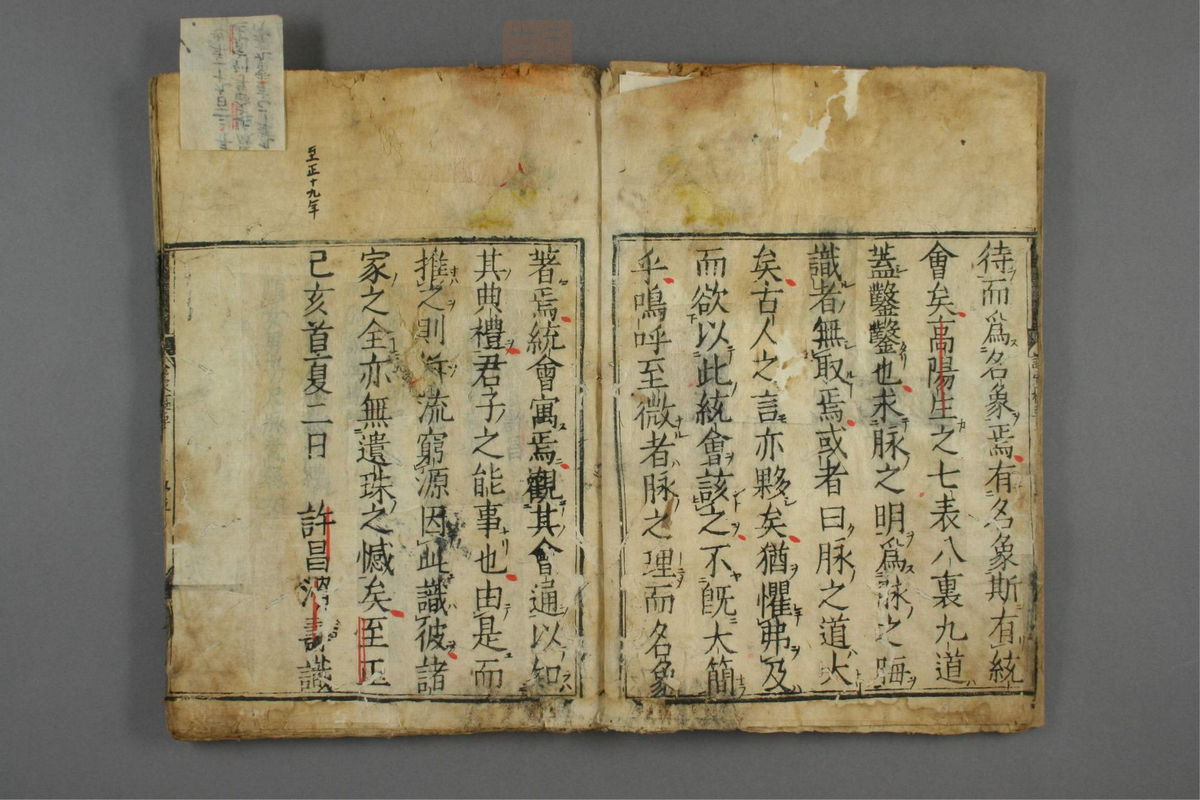 待而爲名象焉有名象斯有統
會矣高陽生之七表八裏九道
蓋鑿鑿也求脉之明爲脉之晦
識者無取焉或者曰脉之道大
矣古人之言亦夥矣猶懼弗及
而欲以此統會該之不旣太簡
乎嗚呼至微者脉之理而名象
著焉統會寓焉觀其會通以知
其典禮君子之能事也由是而
推之則泝流窮源因此識彼諸
家之全亦無遺珠之憾矣至正
己亥首夏二日 許昌滑壽識
至正十九年